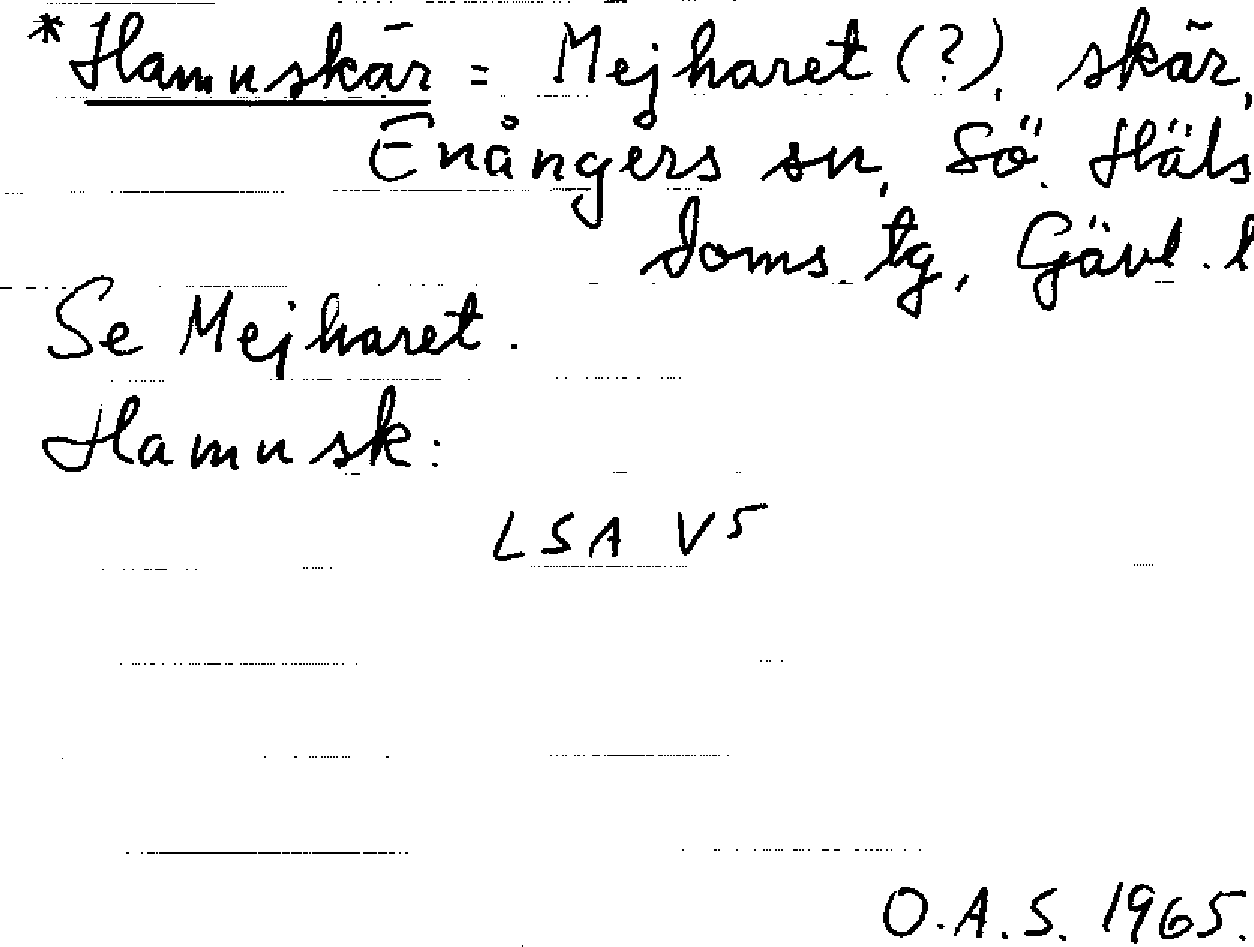 *Hamnskär = Mejharet (?), skär,
Enångers sn, Sö. Häls
doms. tg, Gävl. l
Se Mejharet.
Hamnsk:
LSA V5
O.A.S. 1965.